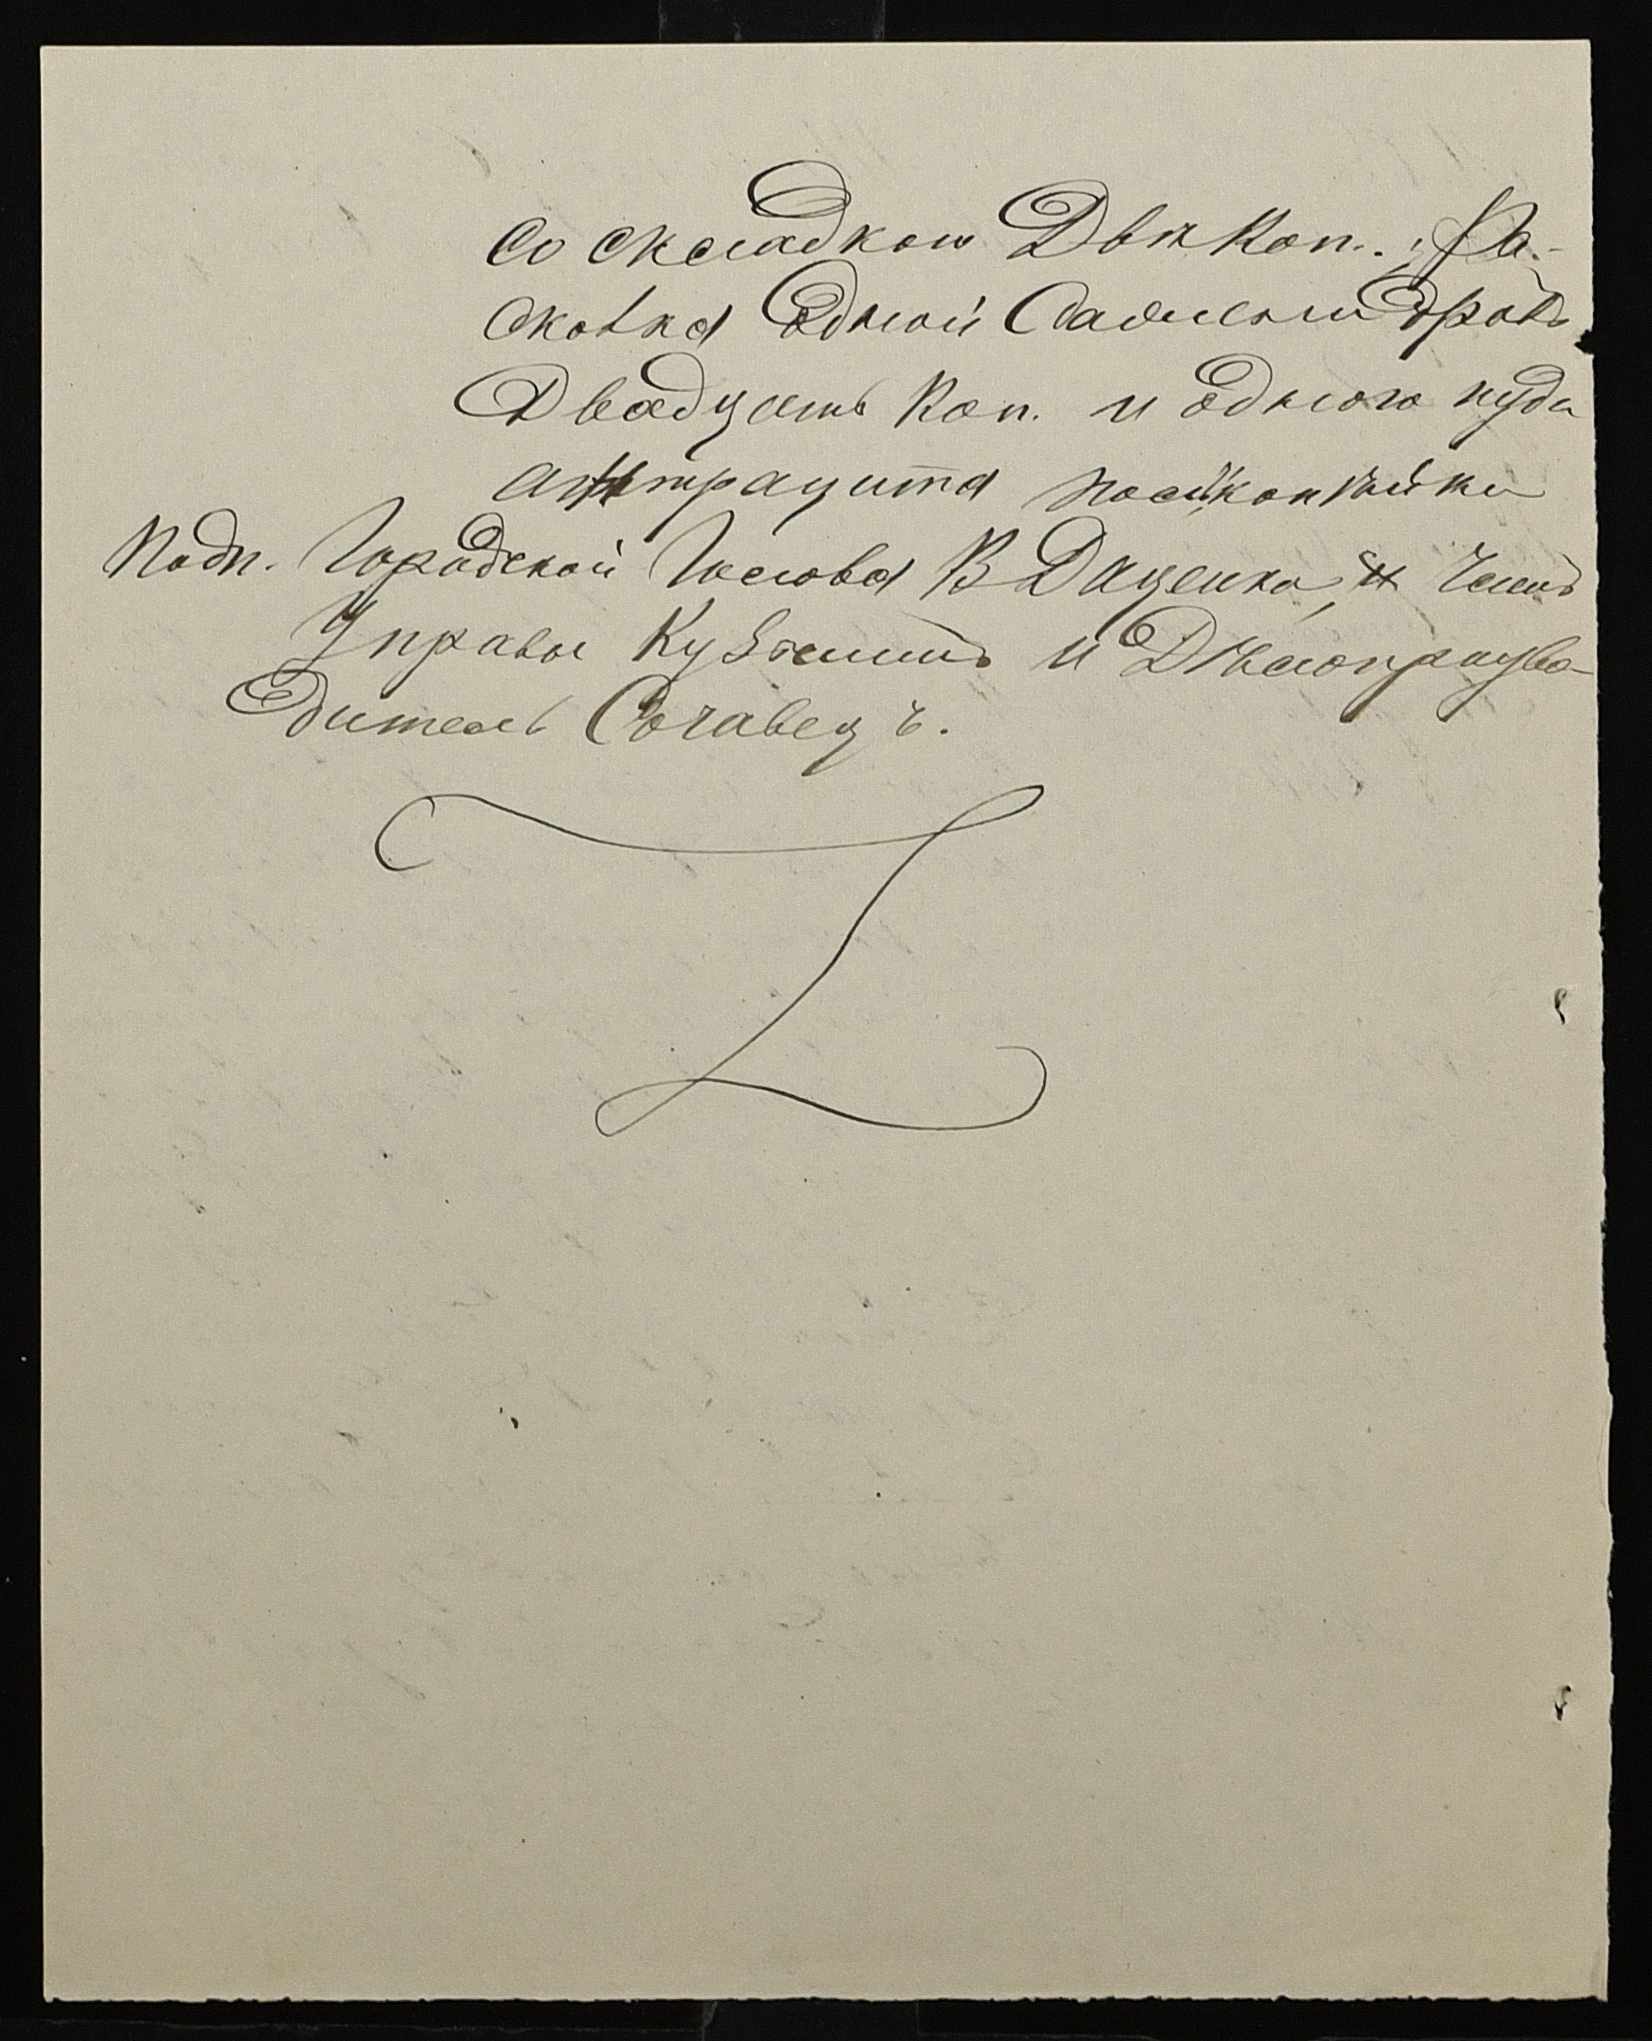 со складкою Двѣ коп.; Ра-
сковка Одной Сажени дровъ
Двадцать коп. и Одного пуда
антрацита полкопѣйки
Подп. Городской Голова В Даценко, Членъ
Управы Кузьминъ и Дѣлопроизво-
дитель Сочавецъ.